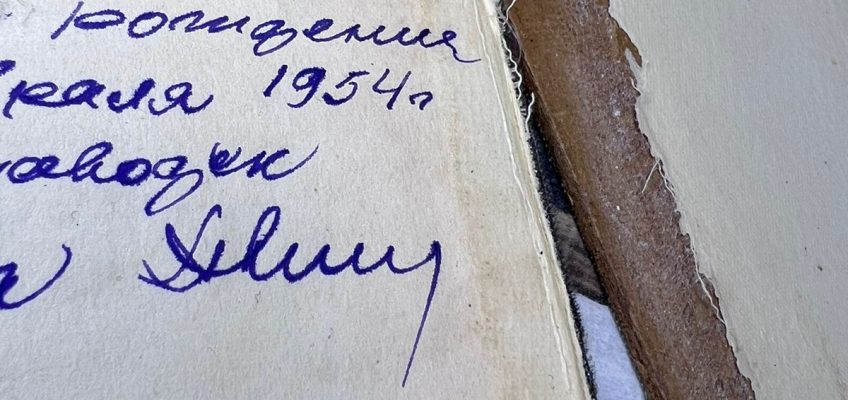 рождения
раля 1954г
аводск